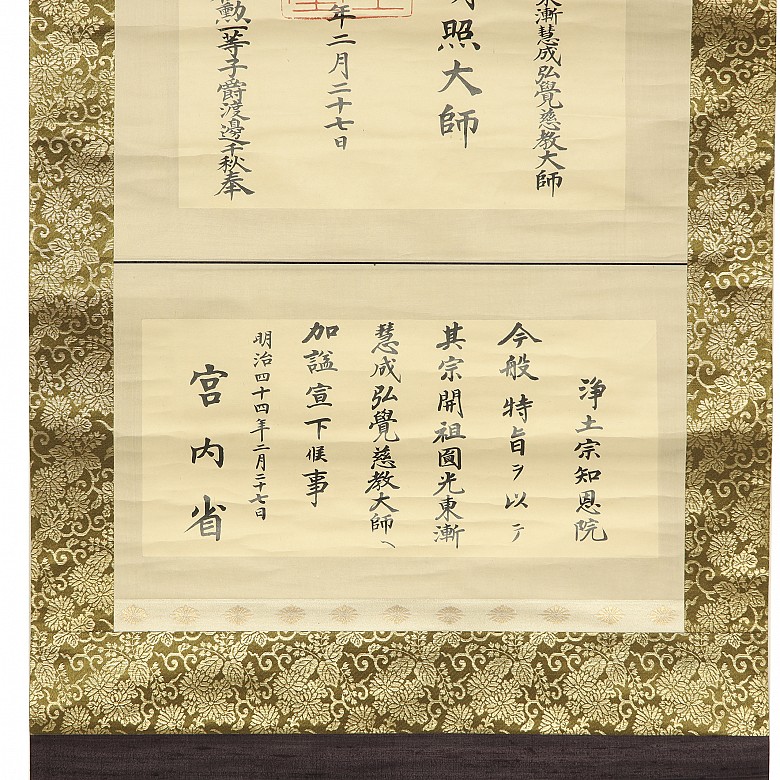 東漸慧成弘覺慈教大師
明照大師
年二月二十七日
勲一等子爵渡邊千秋奉
浄土宗知恩院
今般特旨ヲ以テ
其宗開祖圓光東漸
慧成弘覺慈教大師ヘ
加諡宣下候事
明治四十四年二月二十七日
宮内省